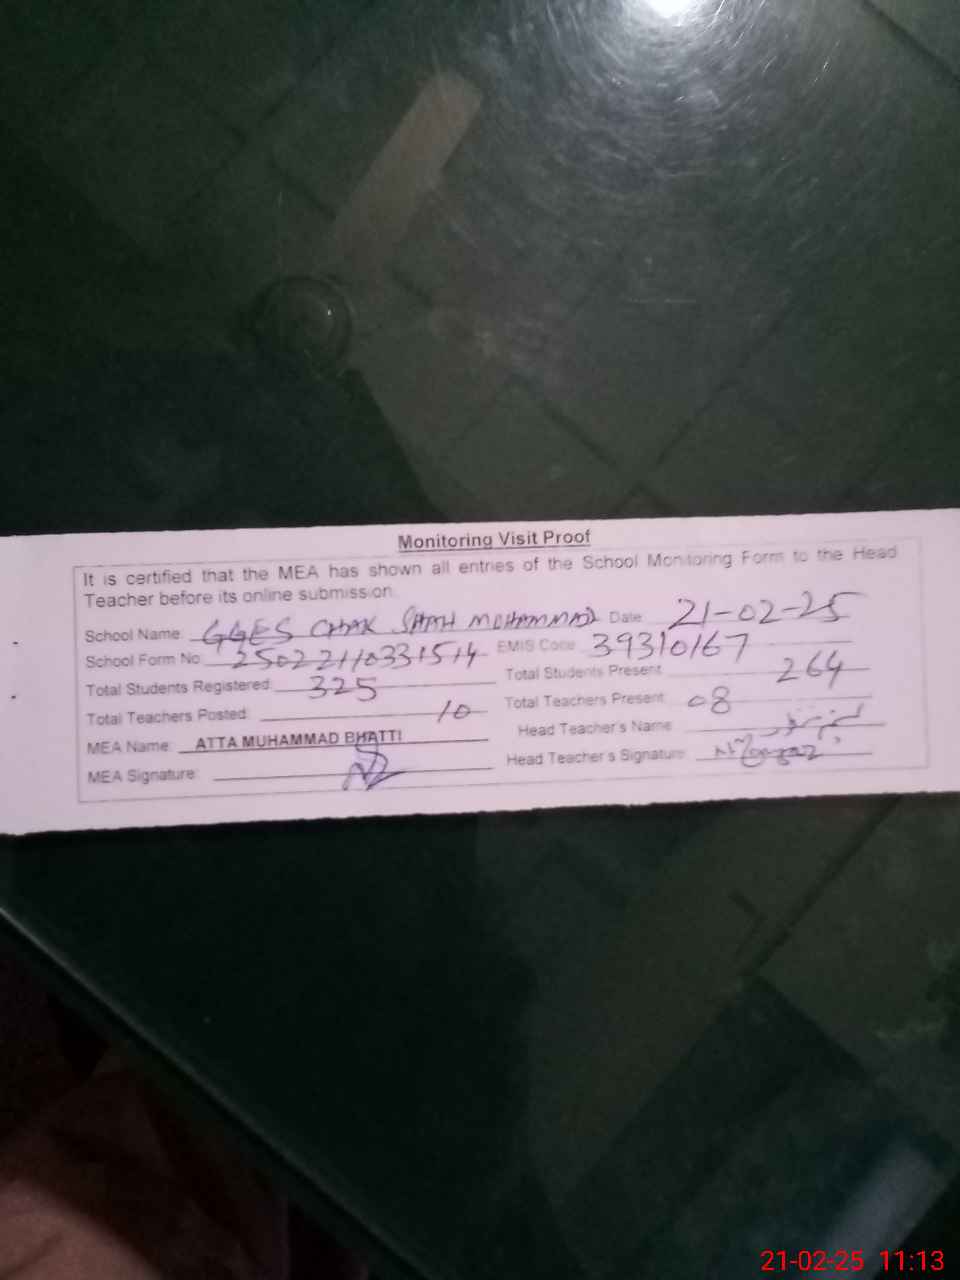 Monitoring Visit Proof
It is certified that the MEA has shown all entries of the School Monitoring Form to the Head
Teacher before its online submission.
School Name: GGES CHAK SHAH MUHAMMAD Date 21-02-25
School Form No. 25022110331514 EMIS Code 39310167
Total Students Registered: 325 Total Students Present 264
Total Teachers Posted: 10 Total Teachers Present 08
MEA Name: ATTA MUHAMMAD BHATTI Head Teacher's Name
MEA Signature: Head Teacher's Signature
21-02-25 11:13